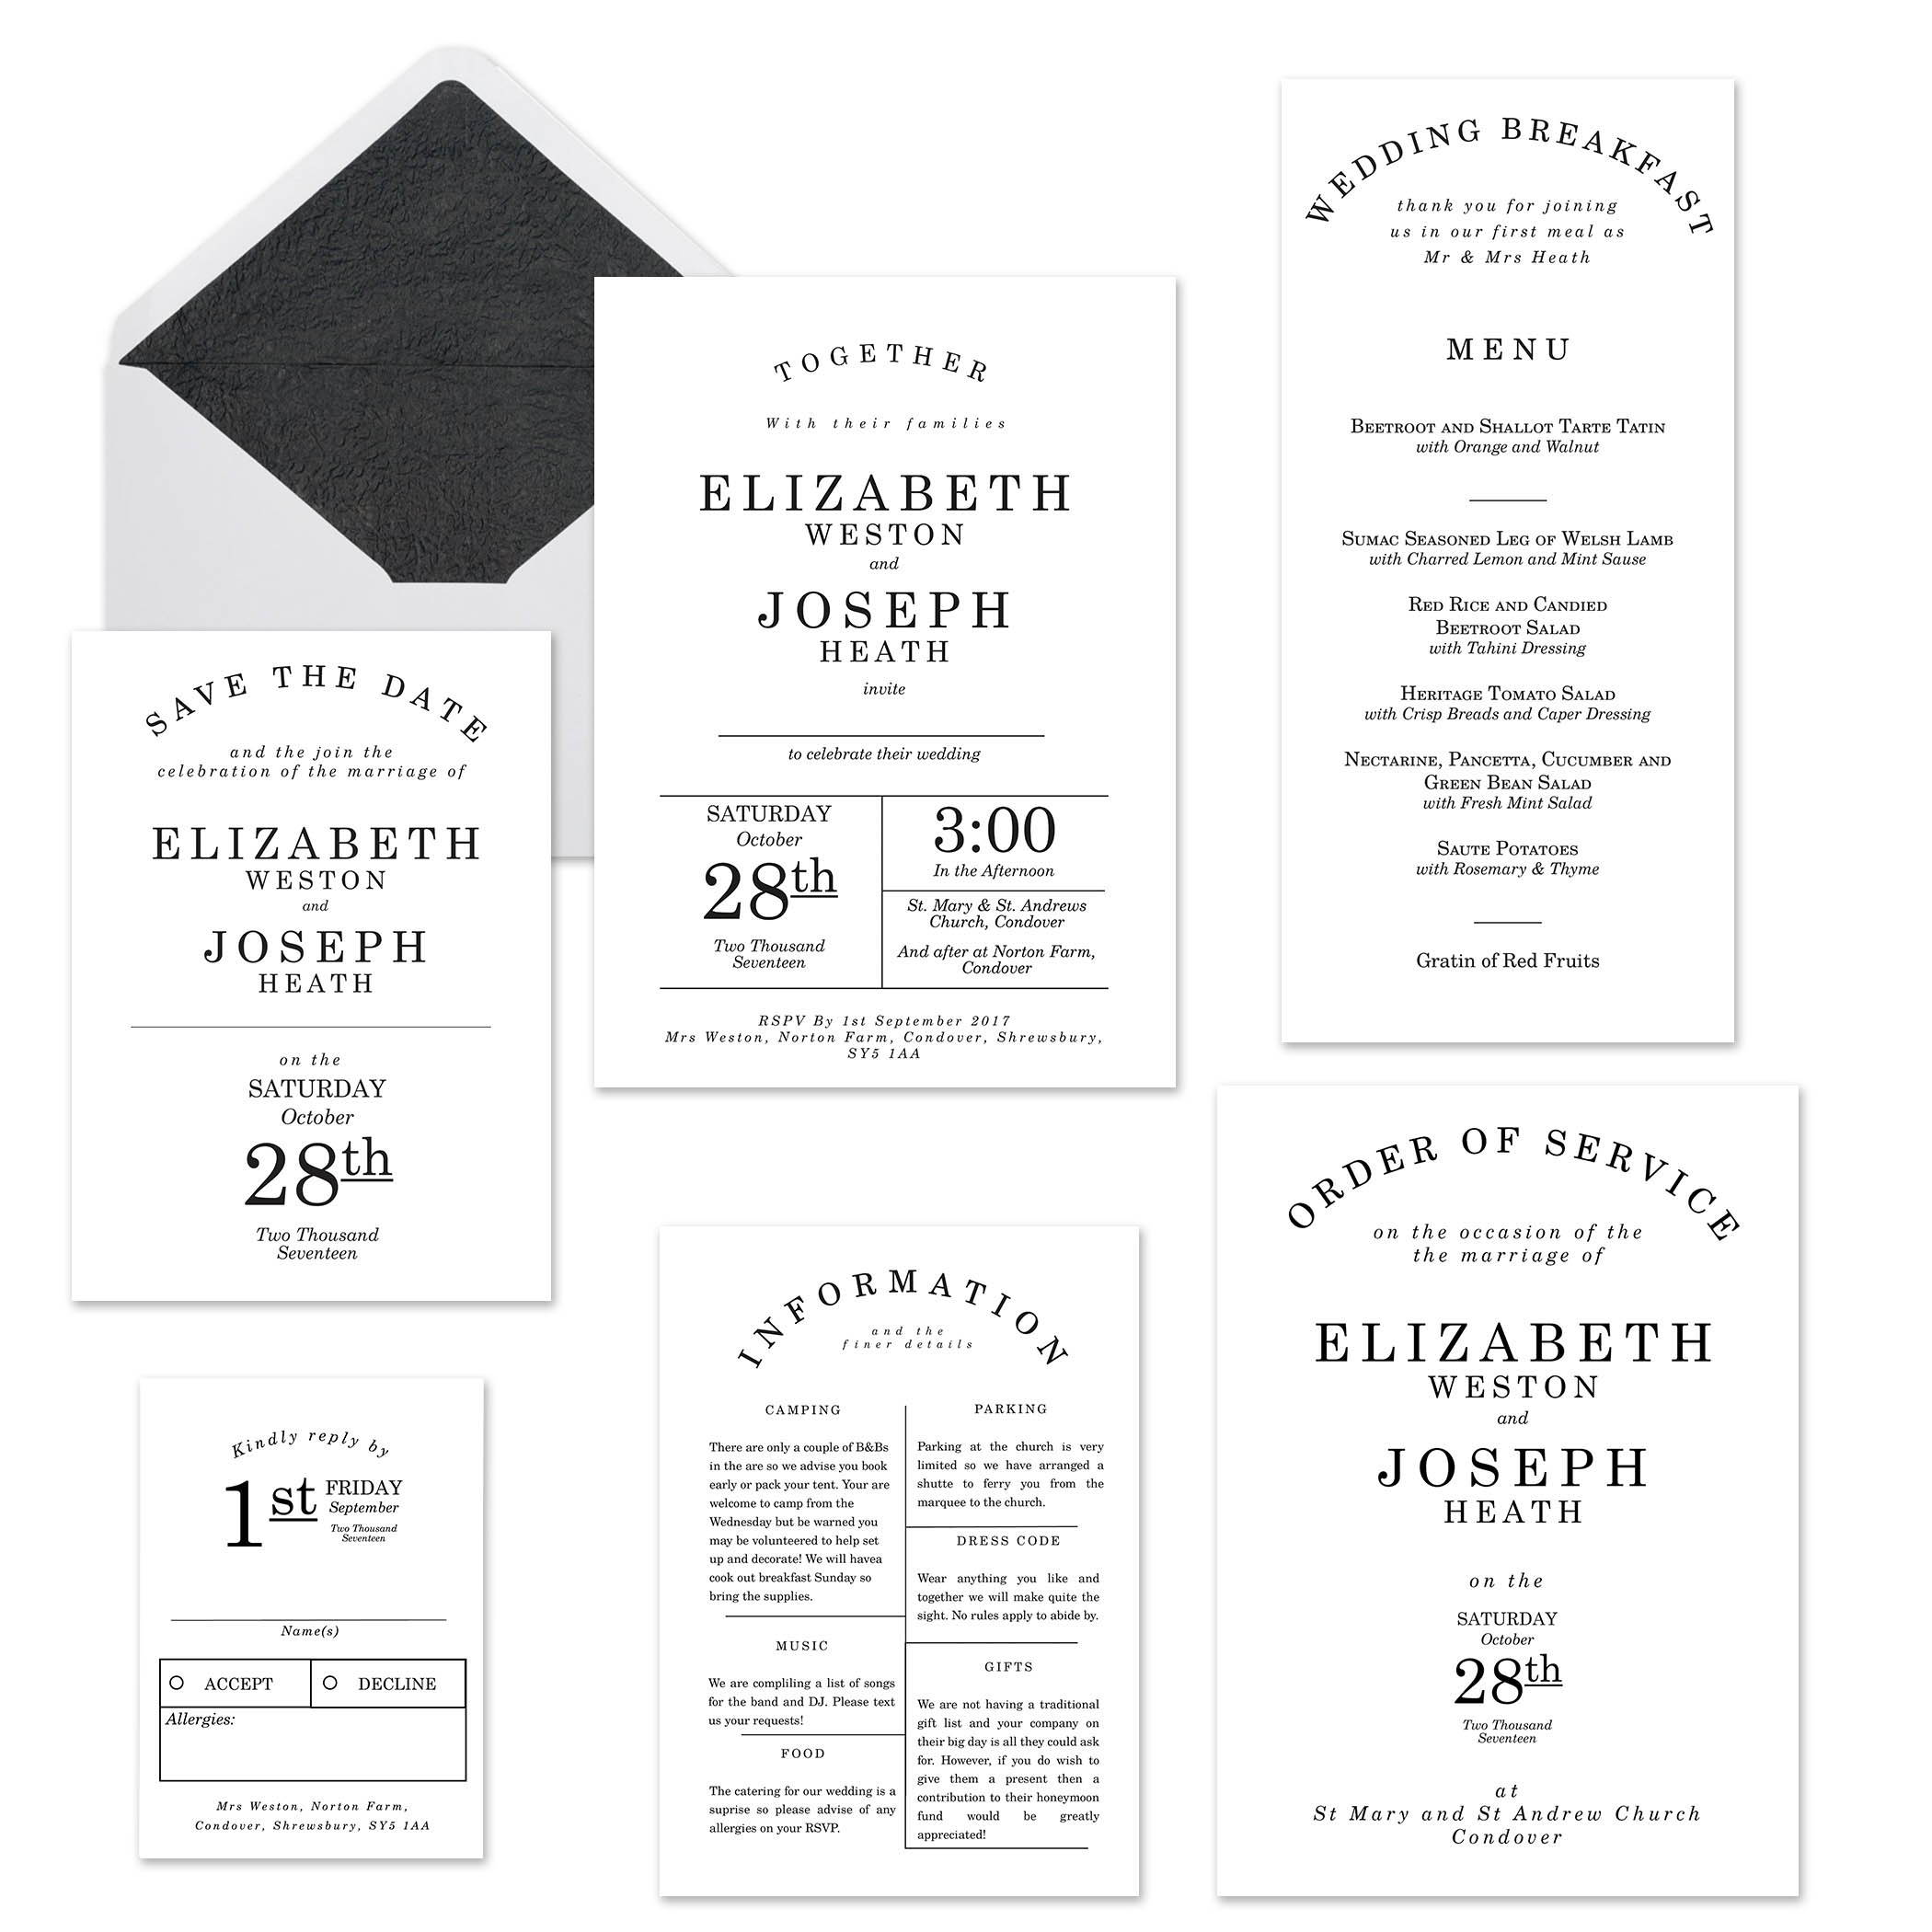 SAVE THE DATE
and the join the
celebration of the marriage of
ELIZABETH
WESTON
and
JOSEPH
HEATH
on the
SATURDAY
October
28th
Two Thousand
Seventeen
TOGETHER
With their families
ELIZABETH
WESTON
and
JOSEPH
HEATH
invite
to celebrate their wedding
SATURDAY
October
28th
Two Thousand
Seventeen
3:00
In the Afternoon
St. Mary & St. Andrews
Church, Condover
And after at Norton Farm,
Condover
RSPV By 1st September 2017
Mrs Weston, Norton Farm, Condover, Shrewsbury,
SY5 1AA
WEDDING BREAKFAST
thank you for joining
us in our first meal as
Mr & Mrs Heath
MENU
BEETROOT AND SHALLOT TARTE TATIN
with Orange and Walnut
SUMAC SEASONED LEG OF WELSH LAMB
with Charred Lemon and Mint Sause
RED RICE AND CANDIED
BEETROOT SALAD
with Tahini Dressing
HERITAGE TOMATO SALAD
with Crisp Breads and Caper Dressing
NECTARINE, PANCETTA, CUCUMBER AND
GREEN BEAN SALAD
with Fresh Mint Salad
SAUTE POTATOES
with Rosemary & Thyme
Gratin of Red Fruits
Kindly reply by
1st
FRIDAY
September
Two Thousand
Seventeen
Name(s)
ACCEPT
DECLINE
Allergies:
Mrs Weston, Norton Farm,
Condover, Shrewsbury, SY5 1AA
INFORMATION
and the
finer details
CAMPING
There are only a couple of B&Bs
in the are so we advise you book
early or pack your tent. Your are
welcome to camp from the
Wednesday but be warned you
may be volunteered to help set
up and decorate! We will havea
cook out breakfast Sunday so
bring the supplies.
MUSIC
We are compliling a list of songs
for the band and DJ. Please text
us your requests!
FOOD
The catering for our wedding is a
suprise so please advise of any
allergies on your RSVP.
PARKING
Parking at the church is very
limited so we have arranged a
shutte to ferry you from the
marquee to the church.
DRESS CODE
Wear anything you like and
together we will make quite the
sight. No rules apply to abide by.
GIFTS
We are not having a traditional
gift list and your company on
their big day is all they could ask
for. However, if you do wish to
give them a present then a
contribution to their honeymoon
fund would be greatly
appreciated!
ORDER OF SERVICE
on the occasion of the
the marriage of
ELIZABETH
WESTON
and
JOSEPH
HEATH
on the
SATURDAY
October
28th
Two Thousand
Seventeen
at
St Mary and St Andrew Church
Condover